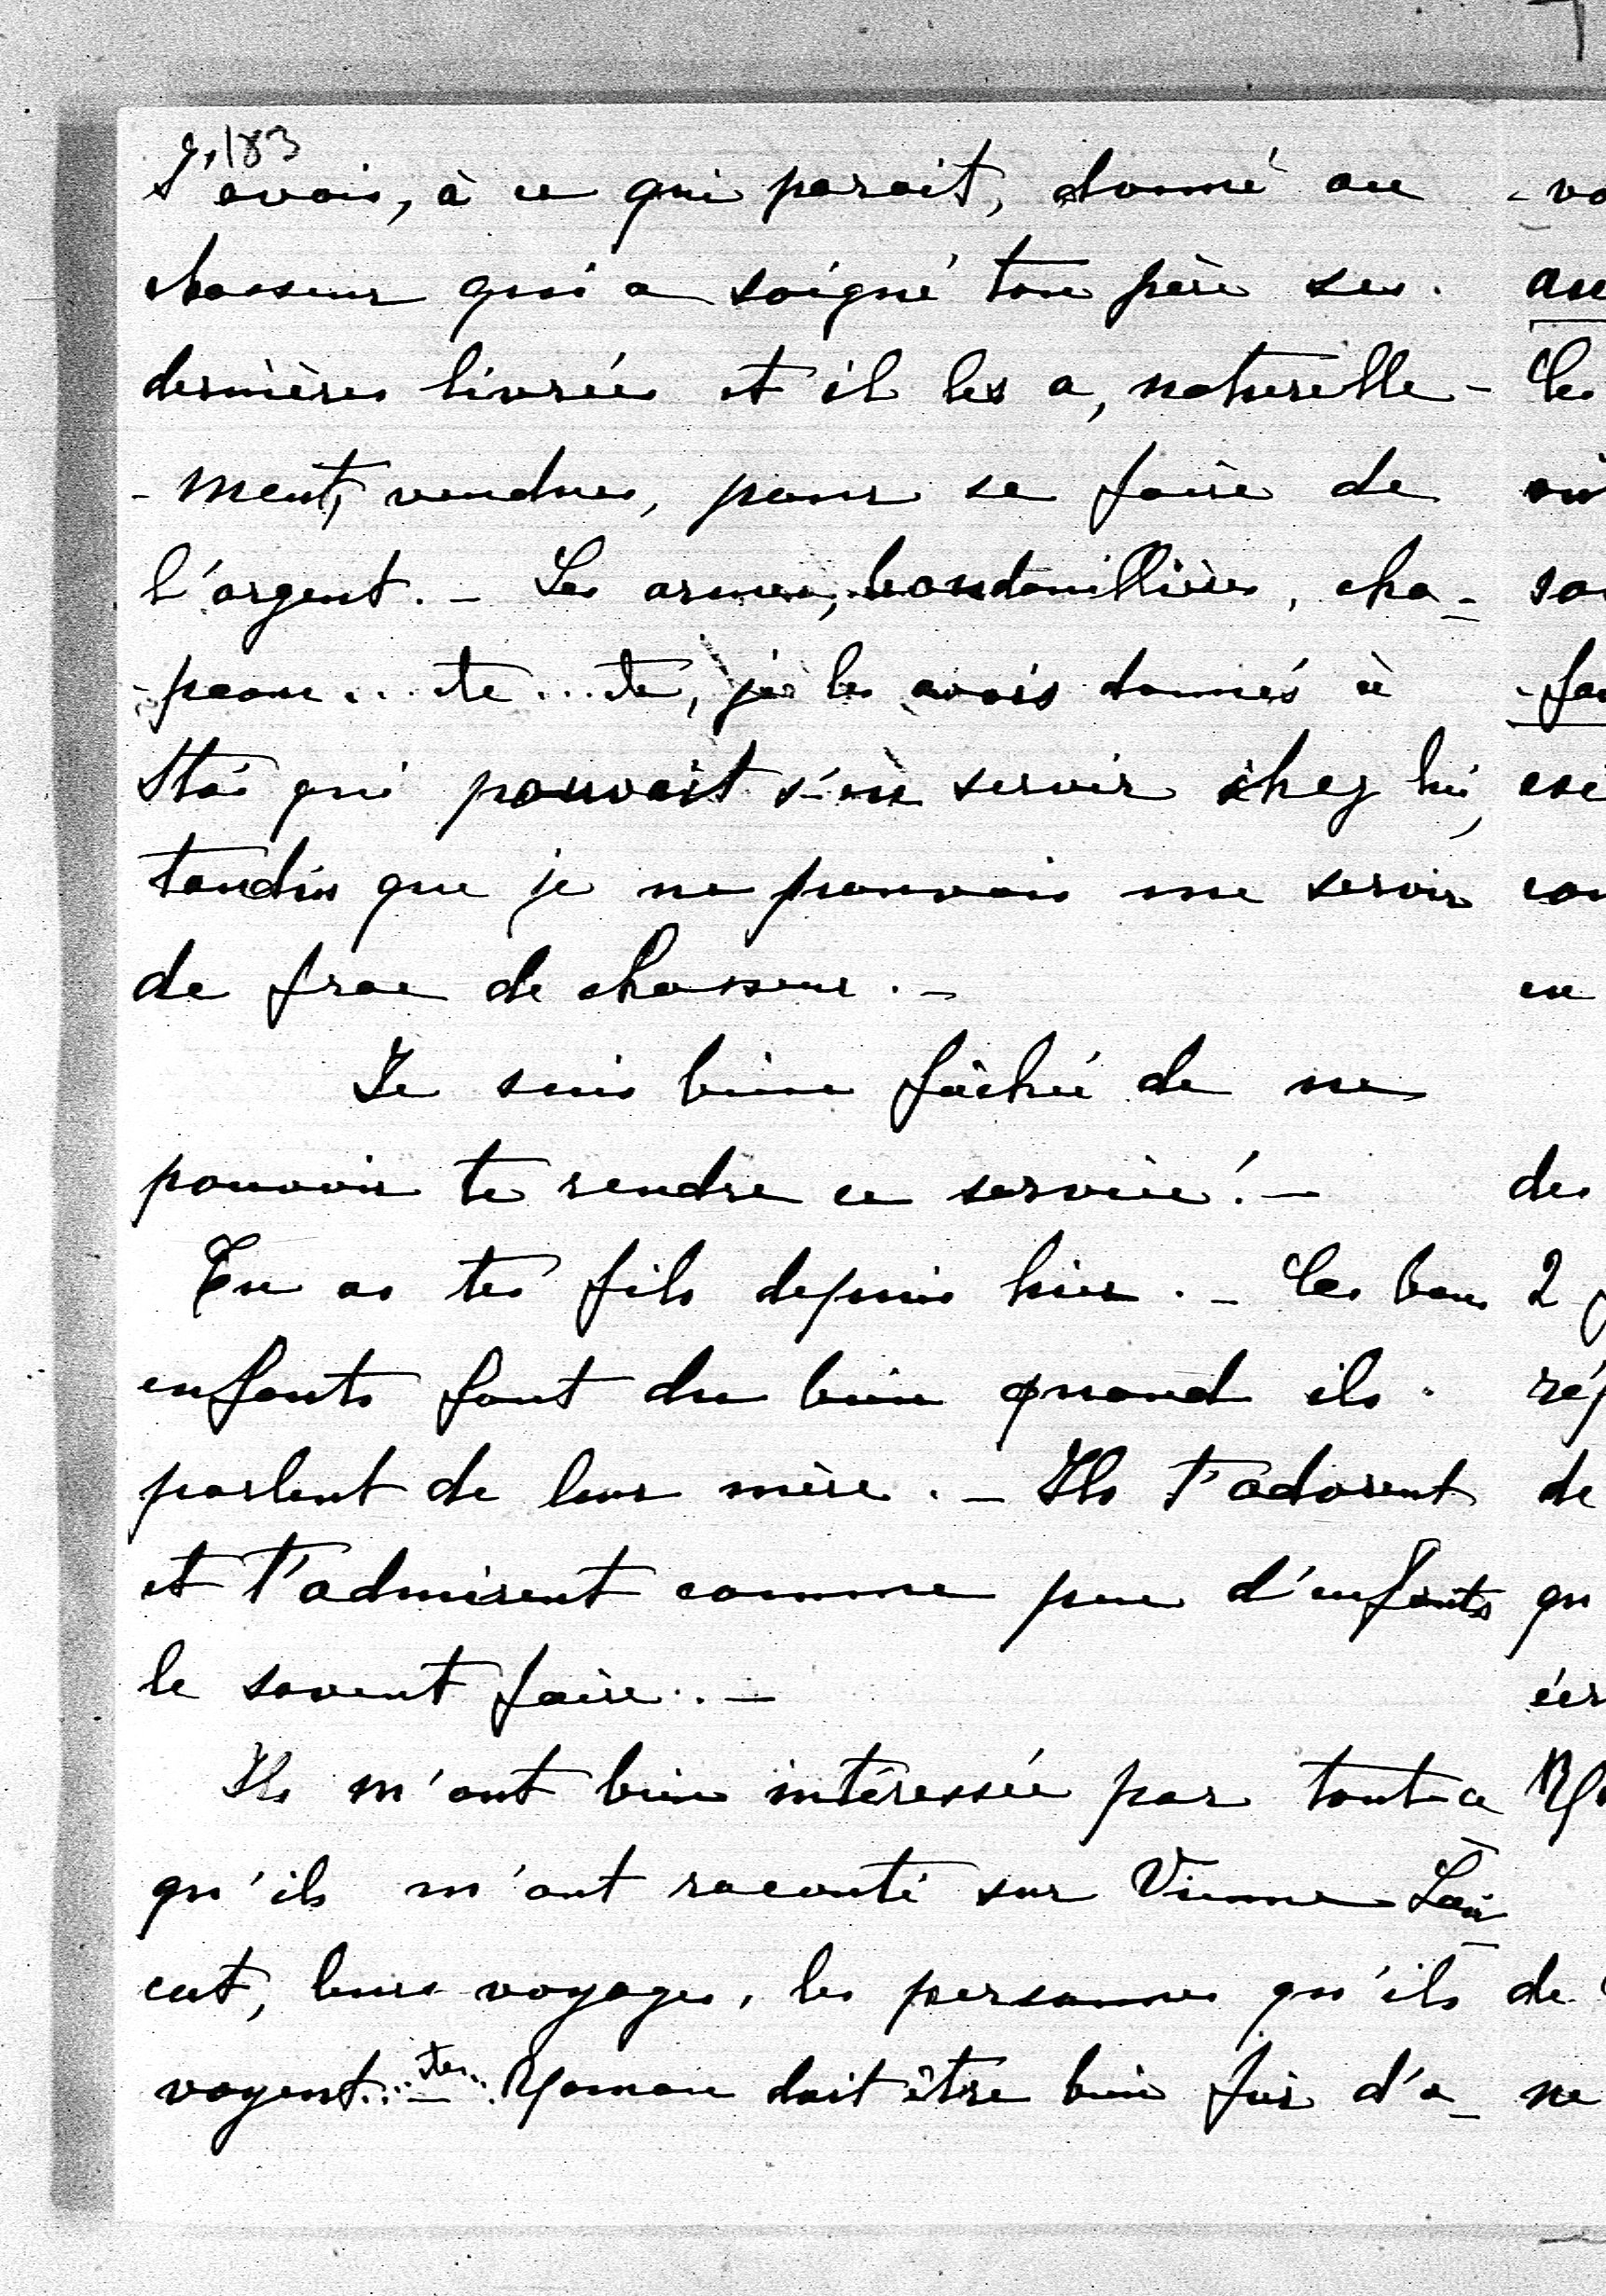 g. 183
J'avais, à ce qui parait, donné au
chasseur qui a soigné ton père ses
dernières livrées et il les a, naturelle-
-ment, vendues, pour se faire de
l'argent. - Les armes, bandouillières, cha-
-peau... etc... etc, je les avais donnés à
Stás qui pouvait s'en servir chez lui,
tandis que je ne pouvais me servir
de frac de chasseur. -
Je suis bien fâchée de ne
pouvoir te rendre ce service! -
Tu as tes fils depuis hier. - Ces bons
enfants font du bien quand ils
parlent de leur mère. - Ils t'adorent
et t'admirent comme peu d'enfants
le savent faire. -
Ils m'ont bien intéressée par tout ce
qu'ils m'ont raconté sur Vienne
cut, leurs voyages, les personnes qu'ils
voyent... etc... Roman doit être bien fier d'a-